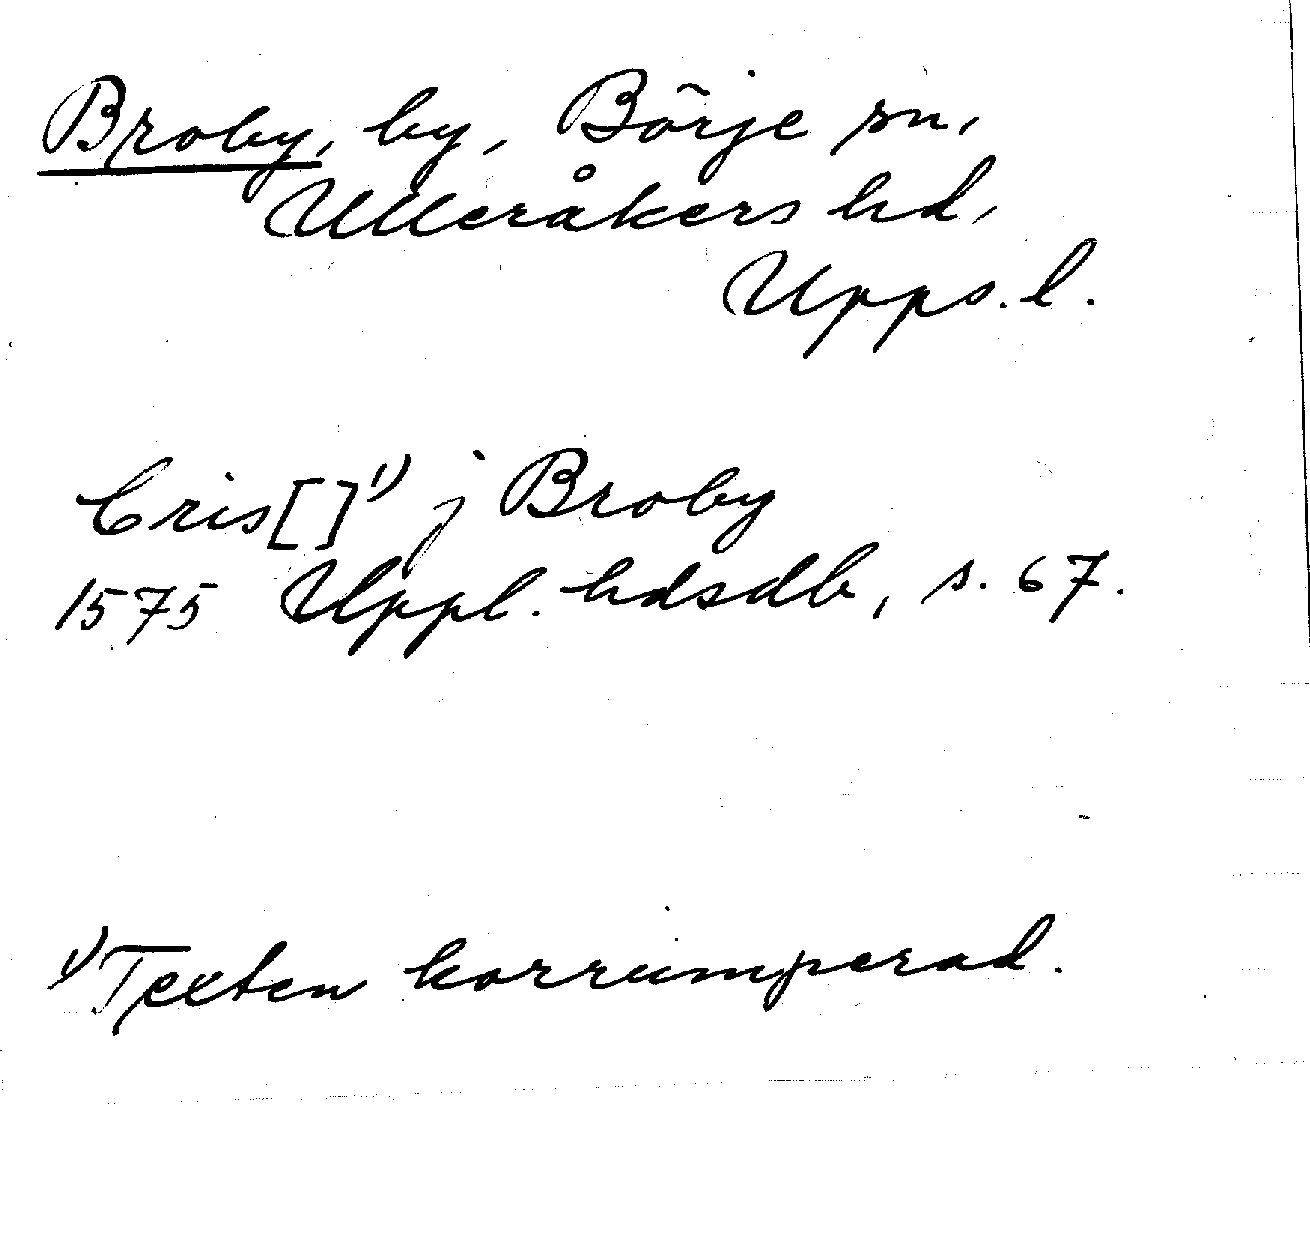 Broby, by, Börje sn,
Ulleråkers hd,
Upps. l.
Cris[]¹⁾ j Broby
1575 Uppl. hdsdb, s. 67.
¹⁾ Texten korrumperad.